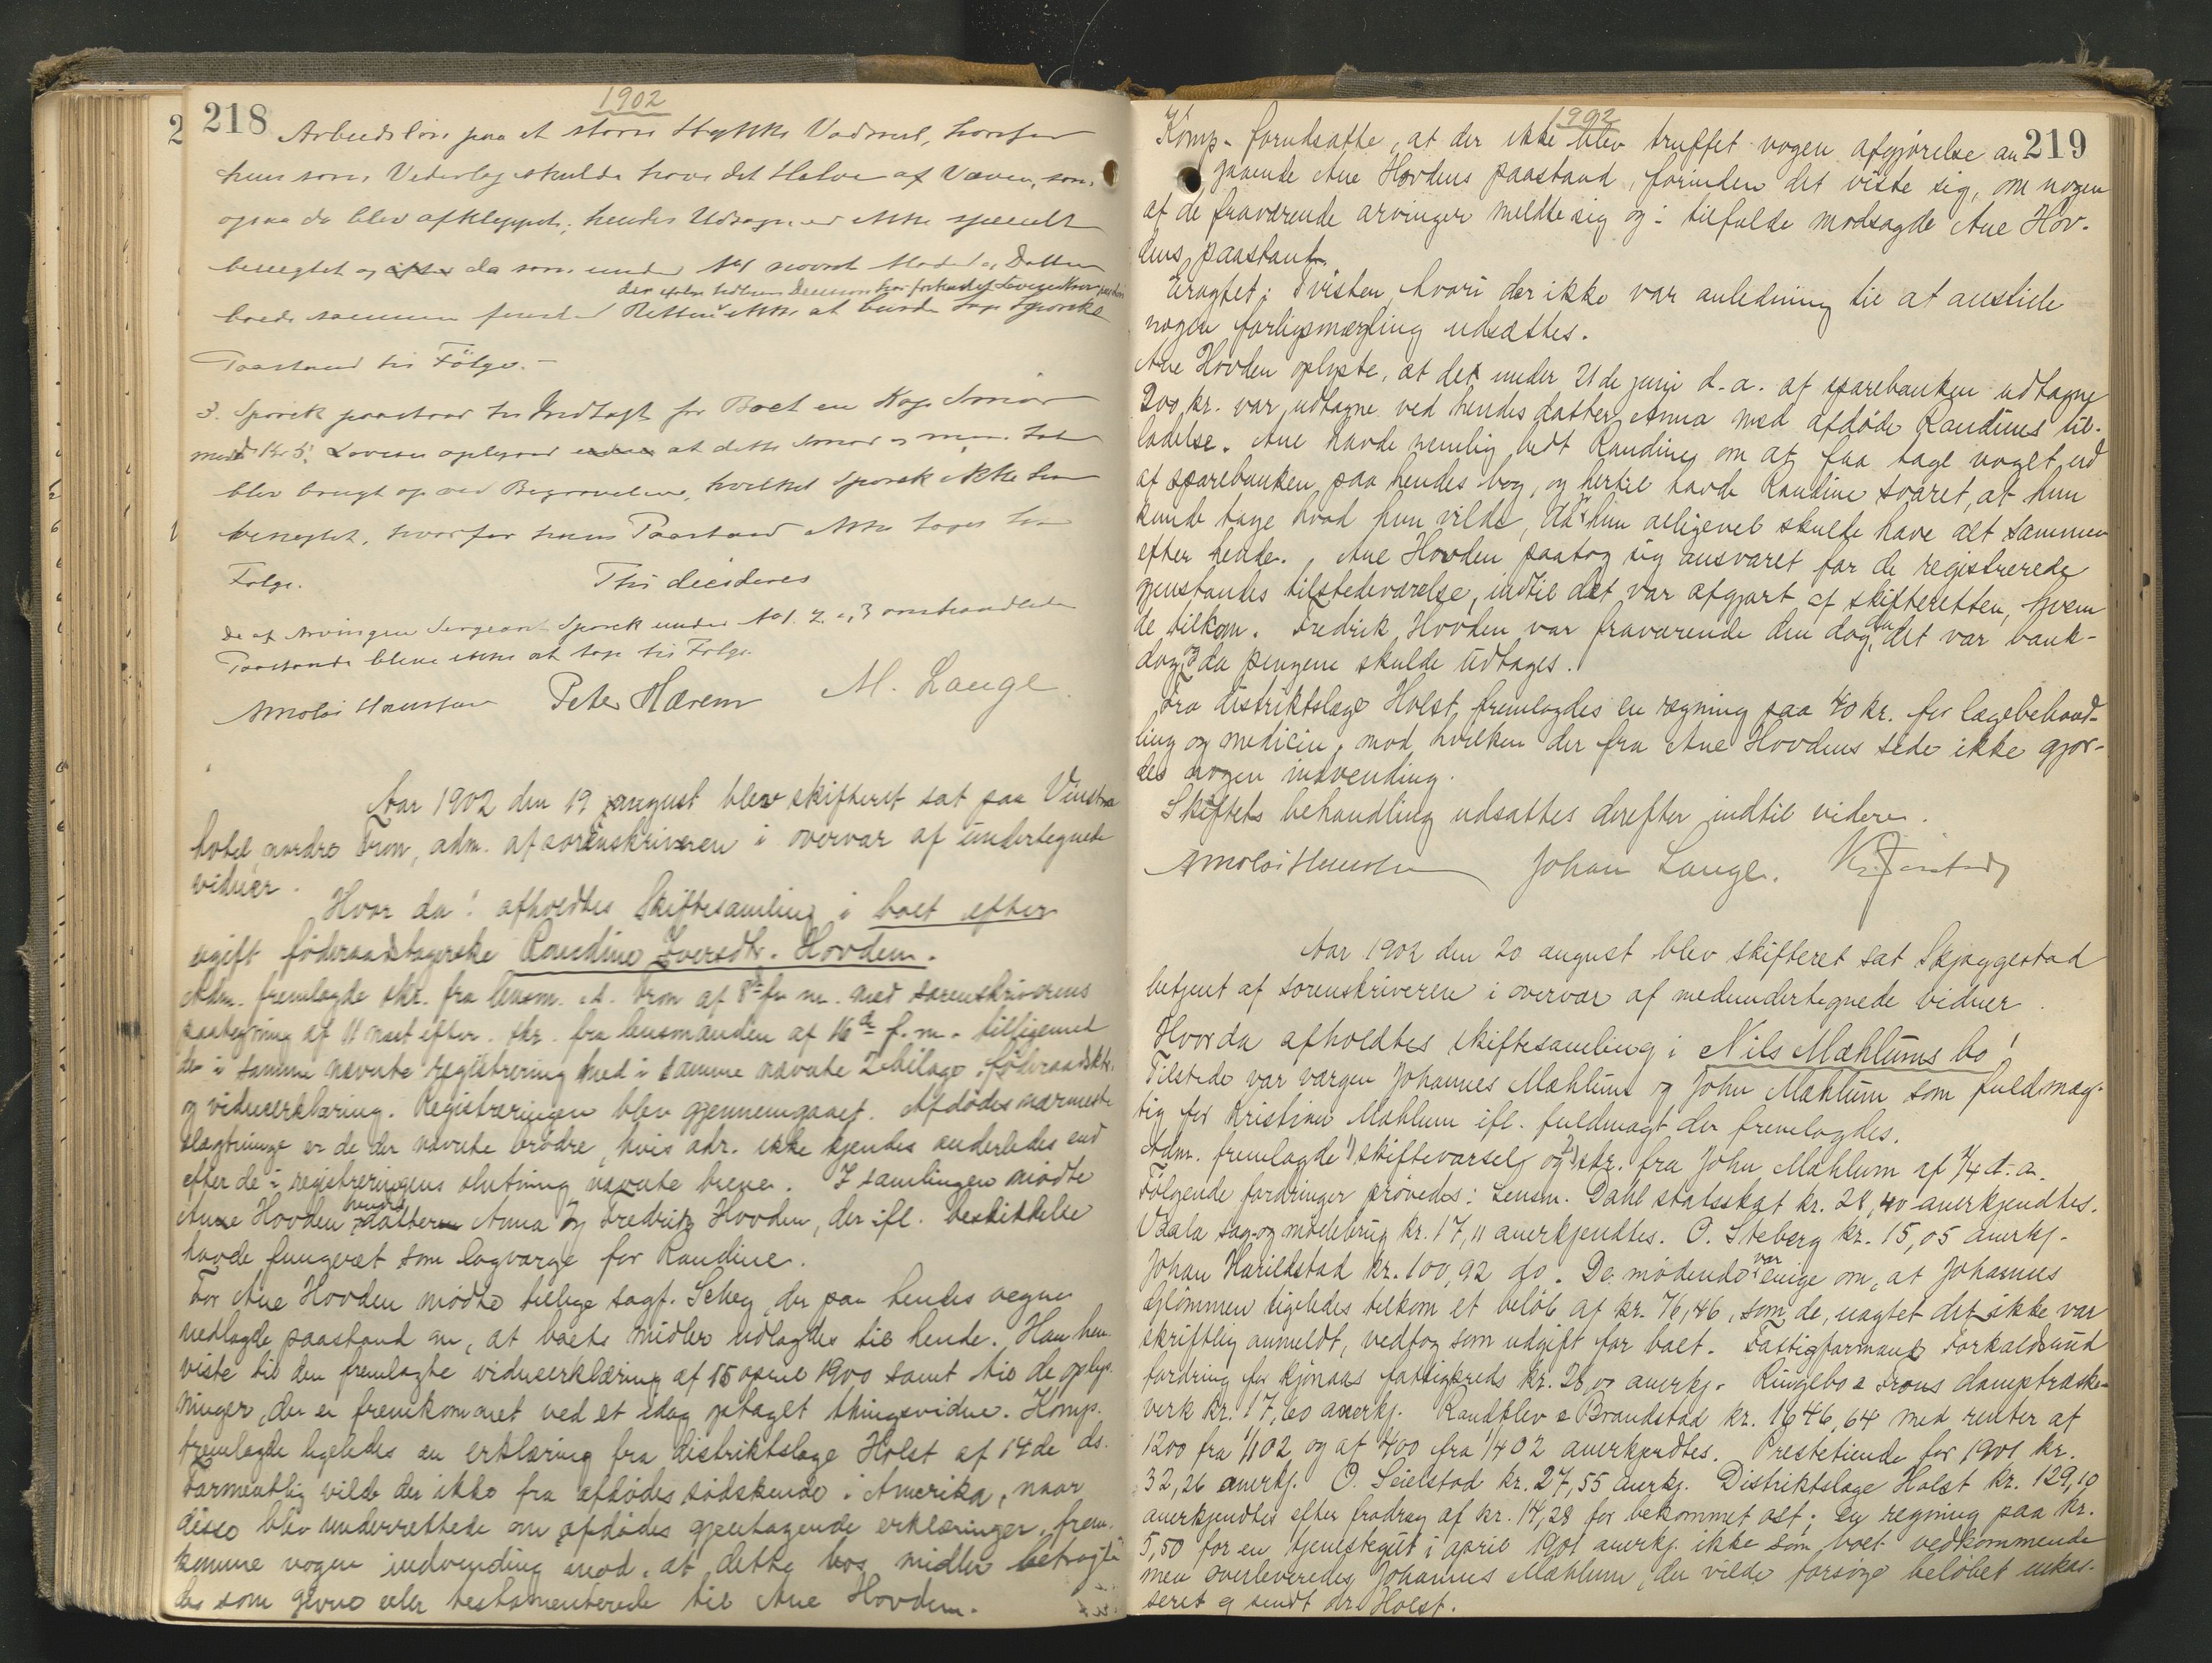 1902
218
Arbeidsløn paa et større Stykke Vadmel, hvorfor
hun som Vederlag skulde have det Halve af Væven, som
ogsaa da blev afklippet; hendes Udsagn er ikke specielt
benegtet og da som under No 1 nævnt Moder og Datter
boede sammen finder Retten ikke at burde tage Sporcks
Paastand til Følge.-
3. Sporck paastaar til Indtægt for Boet en Kop Smør
med Kr 5. Lovise oplyser at dette Smør og mere til
blev brugt op ved Begravelsen, hvilket Sporck ikke har
benegtet, hvorfor hans Paastand ikke tages til
Følge.
Thi decideres
De af Arvingen Sergeant Sporck under No 1. 2 og 3 omhandlede
Paastande blive ikke at tage til Følge.
Peter Hærem M. Lange.
Aar 1902 den 19 august blev skifteret sat paa Vinstra
hotel, nordre Fron, adm. af sorenskriveren i overvær af undertegnede
vidner.
Hvor da: afholdtes Skiftesamling i boet efter
ugift föderaadstagerske Randine Iversdtr. Hovden.
Adm. fremlagde skr. fra lensm. i S. Fron af 8de f. m. med sorenskriverens
paategning af 11 næst efter. skr. fra lensmanden af 16de f. m. tilligemed
de i samme nævnte registrering med i samme nævnte 2 bilage: föderaadsktr.
og vidneerklæring. Registreringen blev gjennemgaaet. Afdødes nærmeste
slægtninge er de der nævnte brødre, hvis adr. ikke kjendes anderledes end
efter de i registreringens slutning nævnte breve. I samlingen mødte
Ane Hovden hendes datter Anna og Fredrik Hovden, der ifl. beskikkelse
havde fungeret som lagværge for Randine.
For Ane Hovden mødte tillige sagf. Scheg, der paa hendes vegne
nedlagde paastand om, at boets midler udlagdes til hende. Han hen-
viste til den fremlagte vidneerklæring af 15 april 1900 samt til de oplys-
ninger, der er fremkommet ved et idag optaget thingsvidne. Komp.
fremlagde ligeledes en erklæring fra distriktslæge Holst af 14de ds.
Formentlig vilde der ikke fra afdødes sødskende i Amerika, naar
disse blev underrettede om afdødes gjentagende erklæringer, frem-
komme nogen indvending mod, at dette bos midler betragte-
des som givne eller testamenterede til Ane Hovden.
1902
219
Komp. forudsatte, at der ikke blev truffet nogen afgjørelse an-
gaaende Ane Hovdens paastand, forinden det viste sig, om nogen
af de fraværende arvinger meldte sig og i tilfælde modsagde Ane Hov-
dens paastand.
Eragtet: Tvisten, hvori der ikke var anledning til at anstille
nogen forligsmægling udsættes.
Ane Hovden oplyste, at de under 21de juni d. a. af sparebanken udtagne
200 kr. var udtagne ved hendes datter Anna med afdøde Randines til-
ladelse. Ane havde nemlig bedt Randine om at faa tage noget ud
af sparebanken paa hendes bog, og hertil havde Randine svaret, at hun
kunde tage hvad hun vilde, da hun alligevel skulde have alt sammen
efter hende. Ane Hovden paatog sig ansvaret for de registrerede
gjenstandes tilstedeværelse, indtil det var afgjort af skifteretten, hvem
de tilkom. Fredrik Hovden var fraværende den dag, da det var bank-
dag og da pengene skulde udtages.
Fra distriktslæge Holst fremlagdes en regning paa 40 kr. for lægebehand-
ling og medicin, mod hvilken der fra Ane Hovdens side ikke gjor-
des nogen indvending.
Skiftets behandling udsattes derefter indtil videre.
Johan Lange.
Aar 1902 den 20 august blev skifteret sat Skjæggestad
betjent af sorenskriveren i overvær af medundertegnede vidner.
Hvor da afholdtes skiftesamling i Nils Mæhlums bo!
Tilstede var værgen Johannes Mæhlum og John Mæhlum som fuldmæg-
tig for Kristine Mæhlum ifl. fuldmagt der fremlagdes.
Adm. fremlagde 1) skiftevarsel og 2) skr. fra John Mæhlum af 7/4 d. a.
Følgende fordringer prøvedes: Lensm. Dahl statsskat kr. 28,40 anerkjendtes.
Vaala sag- og møllebrug kr. 17,11 anerkjendtes. O. Steberg kr. 15,05 anerkj.
Johan Harildstad kr. 100,92 do. De mødende var enige om, at Johannes
Glömmen ligeledes tilkom et beløb af kr. 76,46, som de, uagtet det ikke var
skriftlig anmeldt, vedtog som udgift for boet. Fattigformand Forkalsrud
fordring for Kjönaas fattigkreds kr. 28,00 anerkj. Ringebo & Frons damptræske-
verk kr. 17,60 anerkj. Randklev & Brandstad kr. 1646,64 med renter af
1200 fra 1/1 02 og af 400 fra 1/4 02 anerkjendtes. Prestetiende for 1901 kr.
32,26 anerkj. O. Seielstad kr. 27,55 anerkj. Distriktslæge Holst kr. 129,10
anerkjendtes efter fradrag af kr. 14,28 for bekommet ost; en regning paa kr.
5,50 for en tjenestegut i april 1901 anerkj. ikke som boet vedkommende
men overleveredes Johannes Mæhlum, der vilde forsøge beløbet inkas-
seret og sendt dr. Holst.